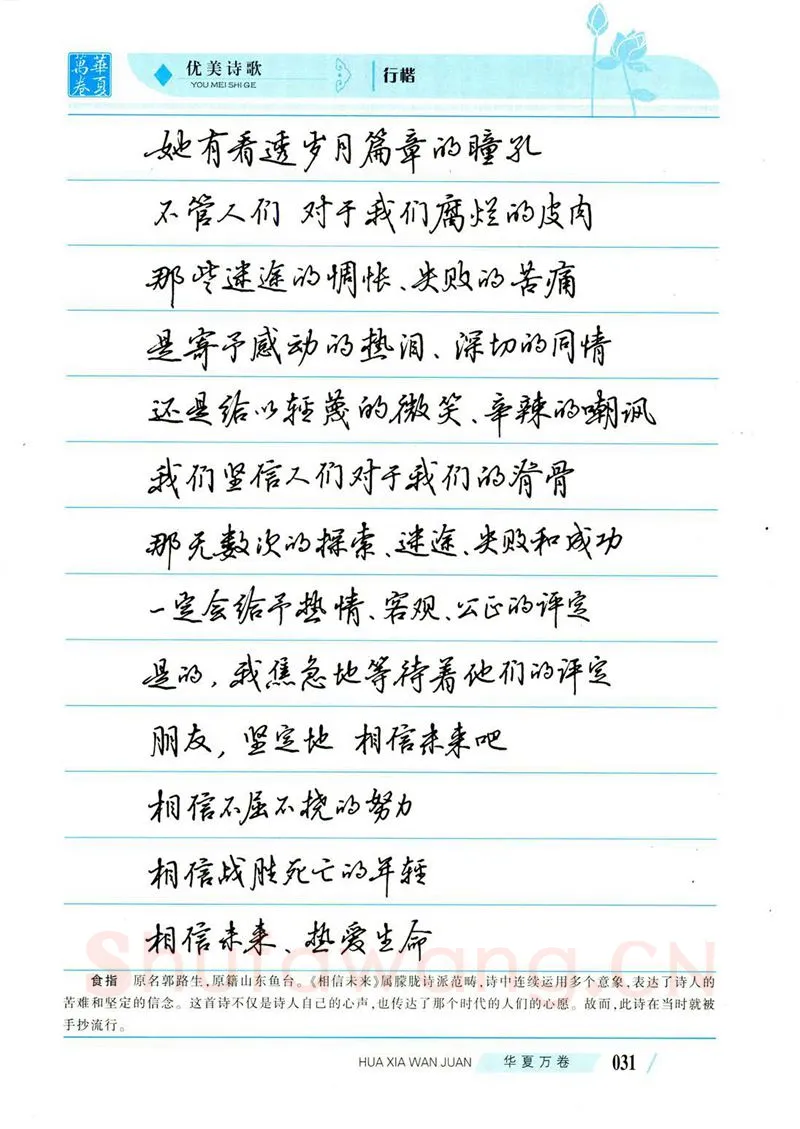 華夏
萬卷
优美诗歌
YOU MEI SHI GE
行楷
她有看透岁月篇章的瞳孔
不管人们 对于我们腐烂的皮肉
那些迷途的惆怅、失败的苦痛
是寄予感动的热泪、深切的同情
还是给以轻蔑的微笑、辛辣的嘲讽
我们坚信人们对于我们的脊骨
那无数次的探索、迷途、失败和成功
一定会给予热情、客观、公正的评定
是的，我焦急地等待着他们的评定
朋友，坚定地 相信未来吧
相信不屈不挠的努力
相信战胜死亡的年轻
相信未来、热爱生命
shufawang.CN
食指 原名郭路生，原籍山东鱼台。《相信未来》属朦胧诗派范畴，诗中连续运用多个意象，表达了诗人的
苦难和坚定的信念。这首诗不仅是诗人自己的心声，也传达了那个时代的人们的心愿。故而，此诗在当时就被
手抄流行。
HUA XIA WAN JUAN 华夏万卷 031